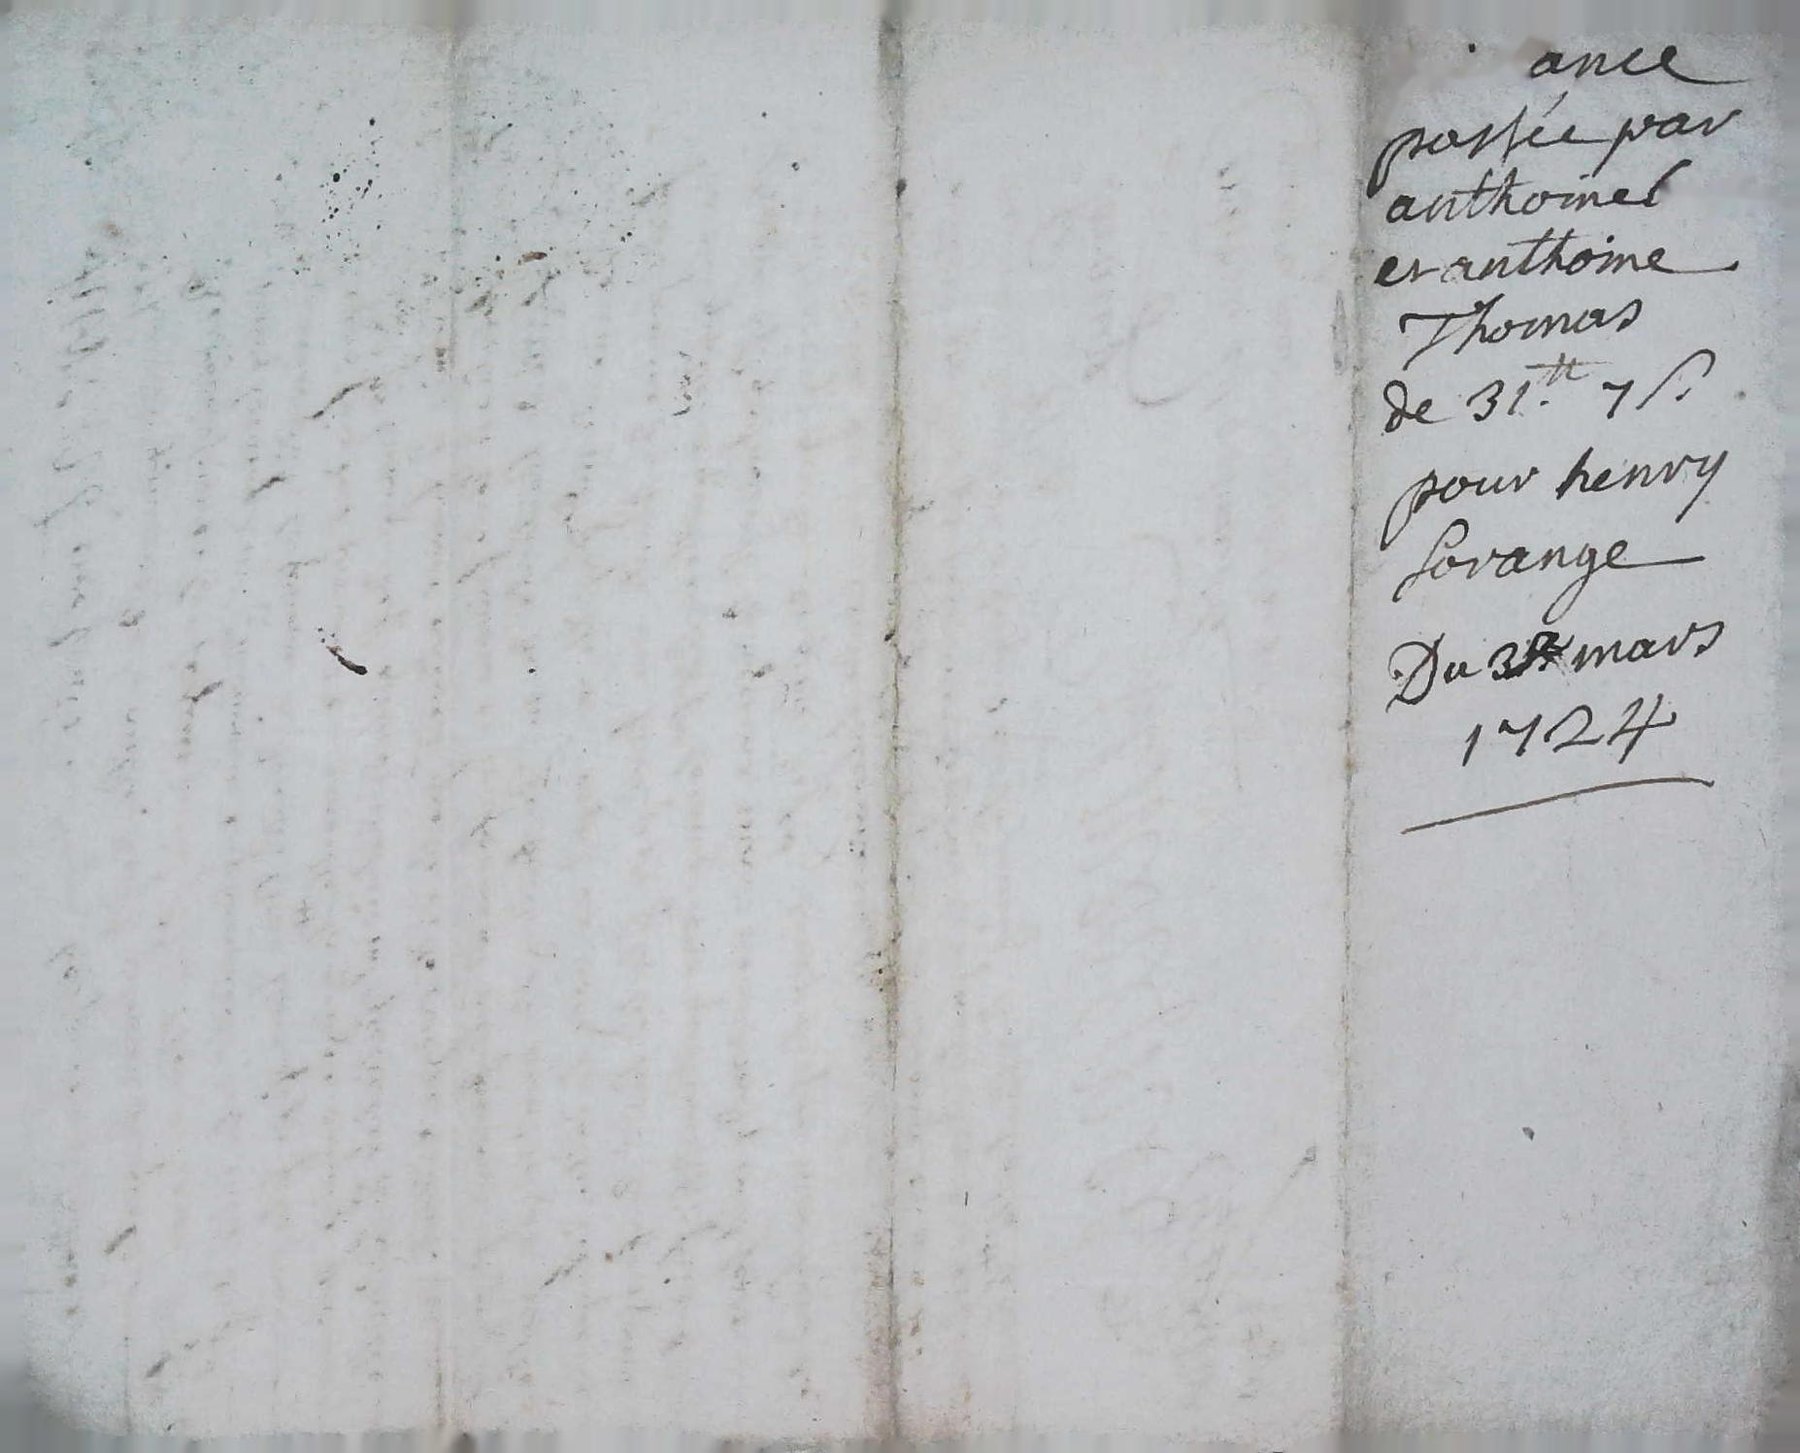 ance
passée par
anthoines
et anthoine
Thomas
de 31.tt 7 s.
pour henry
Lorange
Du 3 mars
1724